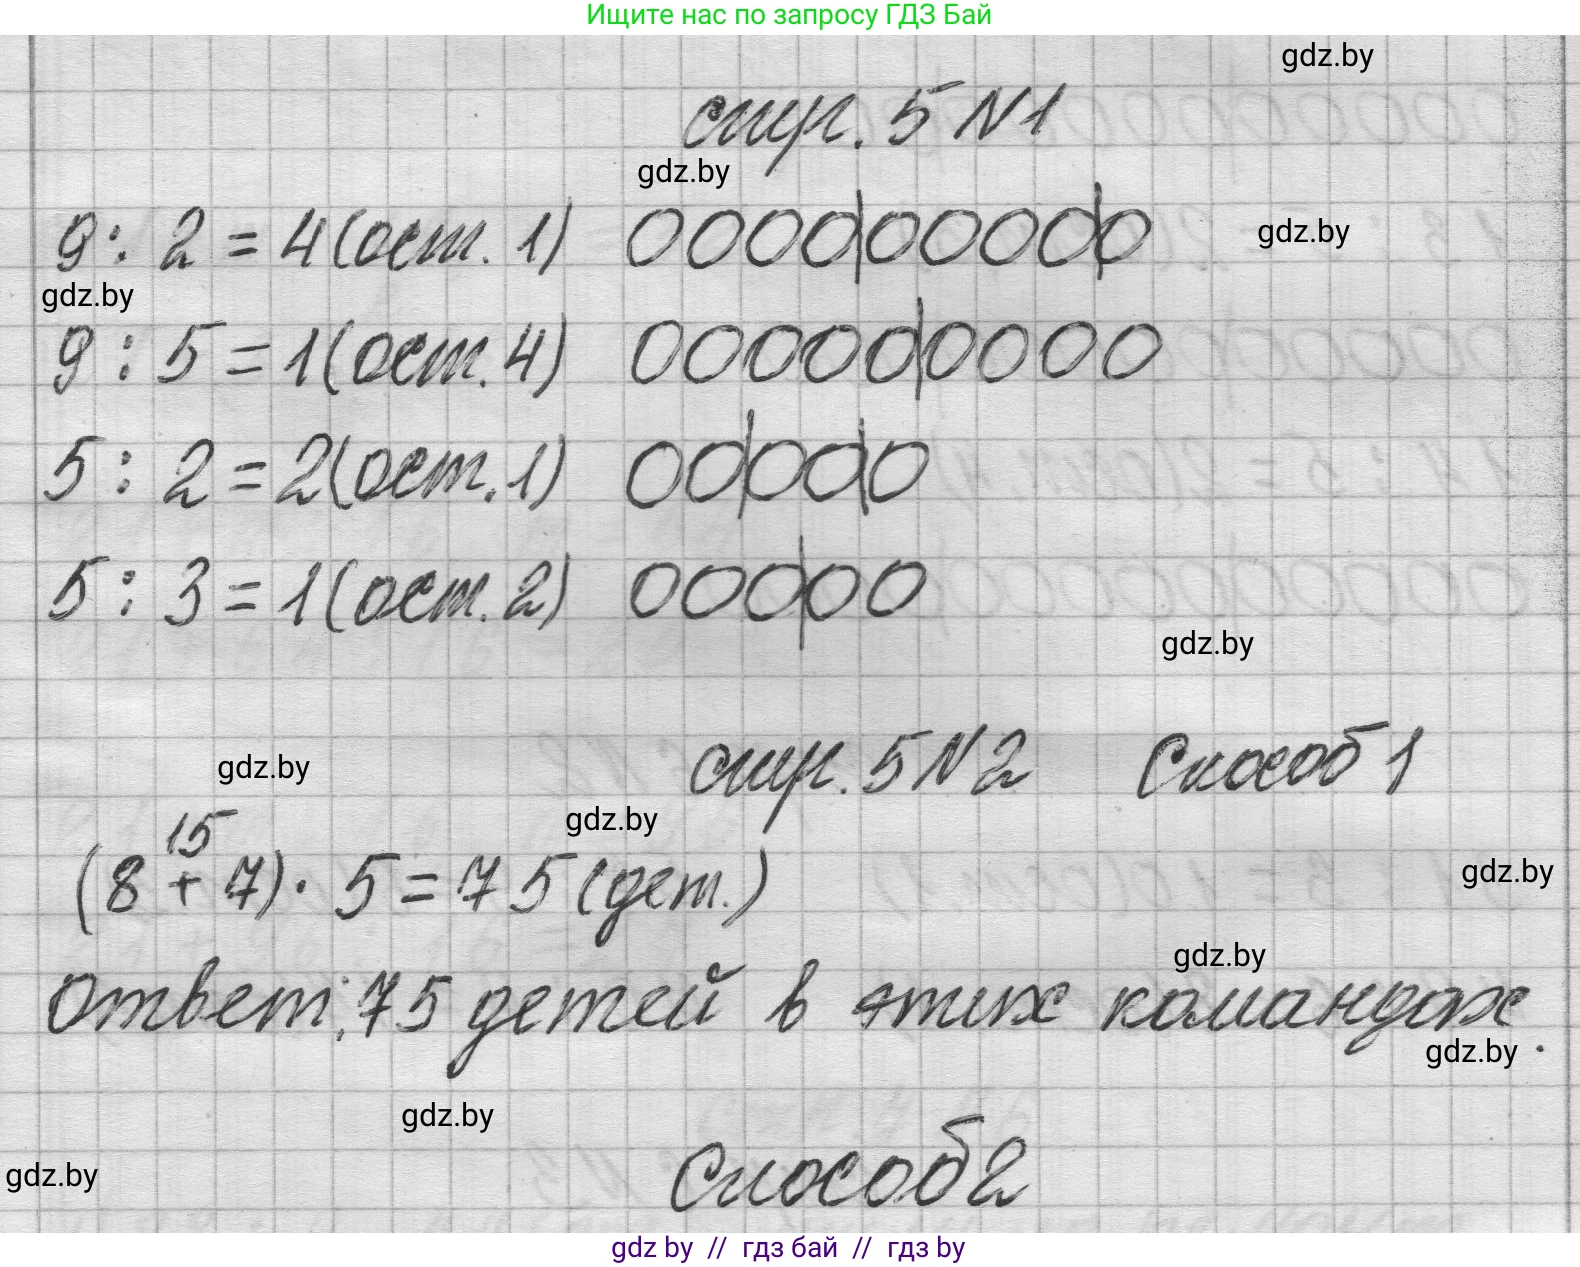 Ищите нас по запросу ГДЗ Бай
gdz.by
стр. 5 N1
gdz.by
9 : 2 = 4 (ост. 1) 0000|0000|0
gdz.by
gdz.by
9 : 5 = 1 (ост. 4) 00000|0000
5 : 2 = 2 (ост. 1) 00|00|0
5 : 3 = 1 (ост. 2) 000|00
gdz.by
стр. 5 N2 Способ 1
gdz.by
gdz.by
15
(8 + 7) · 5 = 75 (дет.)
gdz.by
gdz.by
Ответ: 75 детей в этих командах.
gdz.by
gdz.by
Способ 2
gdz.by
gdz by // гдз бай // гдз by